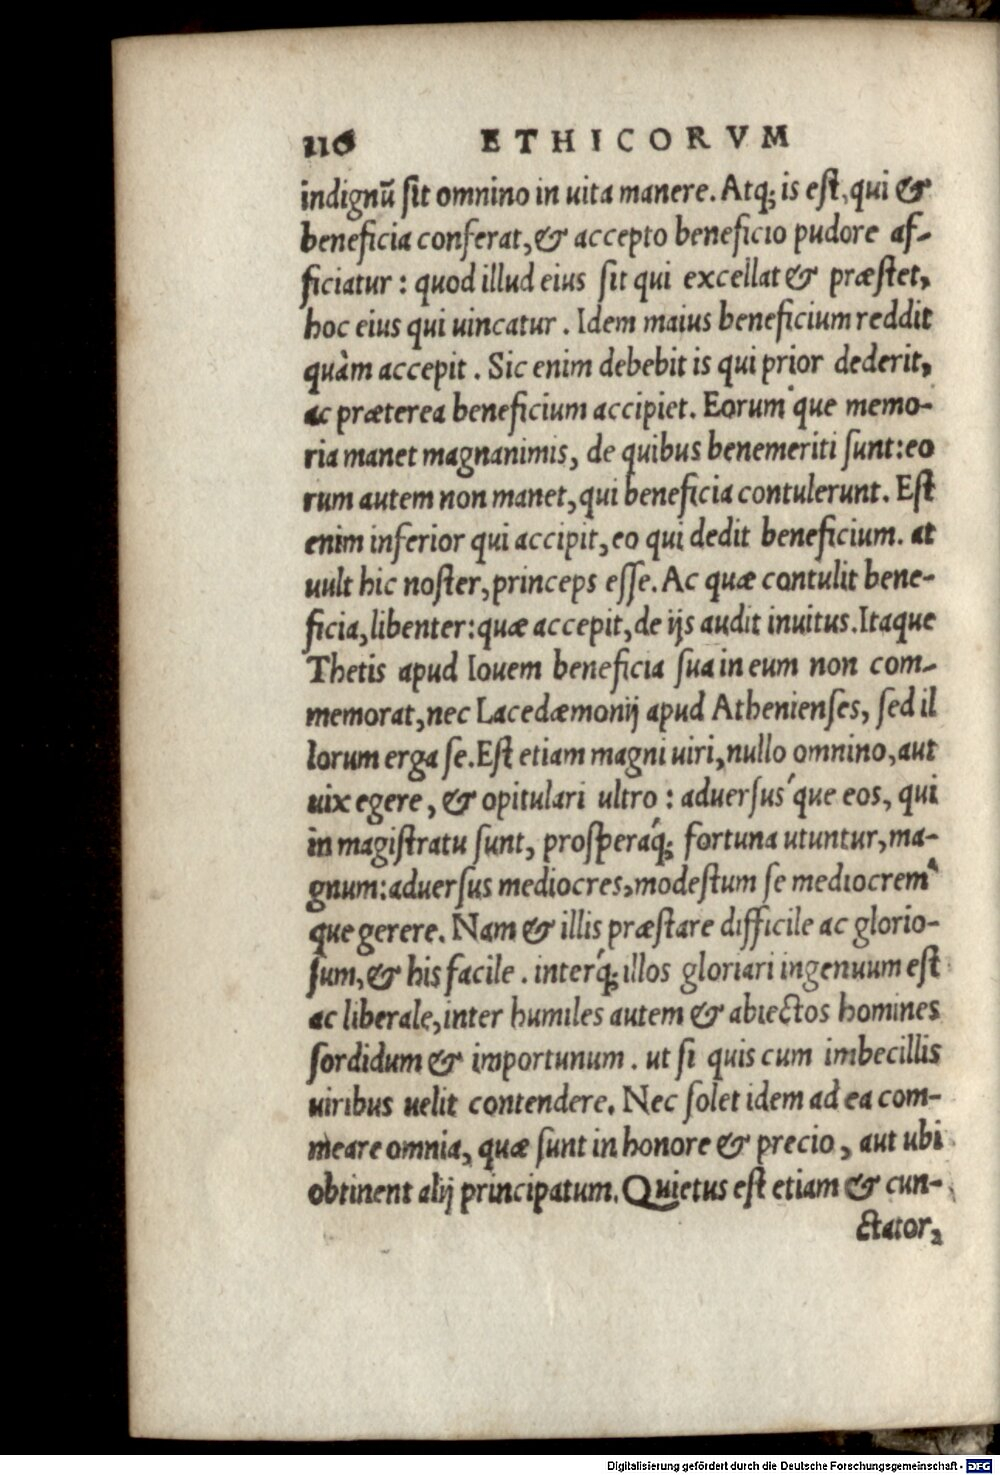 116 ETHICORVM
indignū ſit omnino in uita manere. Atq; is eſt, qui &
beneficia conferat, & accepto beneficio pudore af-
ficiatur : quod illud eius ſit qui excellat & præſtet,
hoc eius qui uincatur . Idem maius beneficium reddit
quàm accepit . Sic enim debebit is qui prior dederit,
ac præterea beneficium accipiet. Eorum´que memo-
ria manet magnanimis, de quibus benemeriti ſunt: eo
rum autem non manet, qui beneficia contulerunt. Eſt
enim inferior qui accipit, eo qui dedit beneficium. at
uult hic noſter, princeps eſſe. Ac quæ contulit bene-
ficia, libenter: quæ accepit, de ijs audit inuitus. Itaque
Thetis apud Iouem beneficia ſua in eum non com-
memorat, nec Lacedæmonij apud Athenienſes, ſed il
lorum erga ſe. Eſt etiam magni uiri, nullo omnino, aut
uix egere, & opitulari ultro : aduerſus´que eos, qui
in magiſtratu ſunt, proſperáq; fortuna utuntur, ma-
gnum: aduerſus mediocres, modeſtum ſe mediocrem´
que gerere. Nam & illis præſtare difficile ac glorio-
ſum, & his facile . interq́; illos gloriari ingenuum eſt
ac liberale, inter humiles autem & abiectos homines
ſordidum & importunum . ut ſi quis cum imbecillis
uiribus uelit contendere. Nec ſolet idem ad ea com-
meare omnia, quæ ſunt in honore & precio, aut ubi
obtinent alij principatum. Quietus eſt etiam & cun-
ctator,
Digitalisierung gefördert durch die Deutsche Forschungsgemeinschaft - DFG